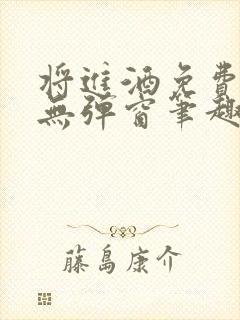 將進酒免費
無彈窗筆趣
藤島康介